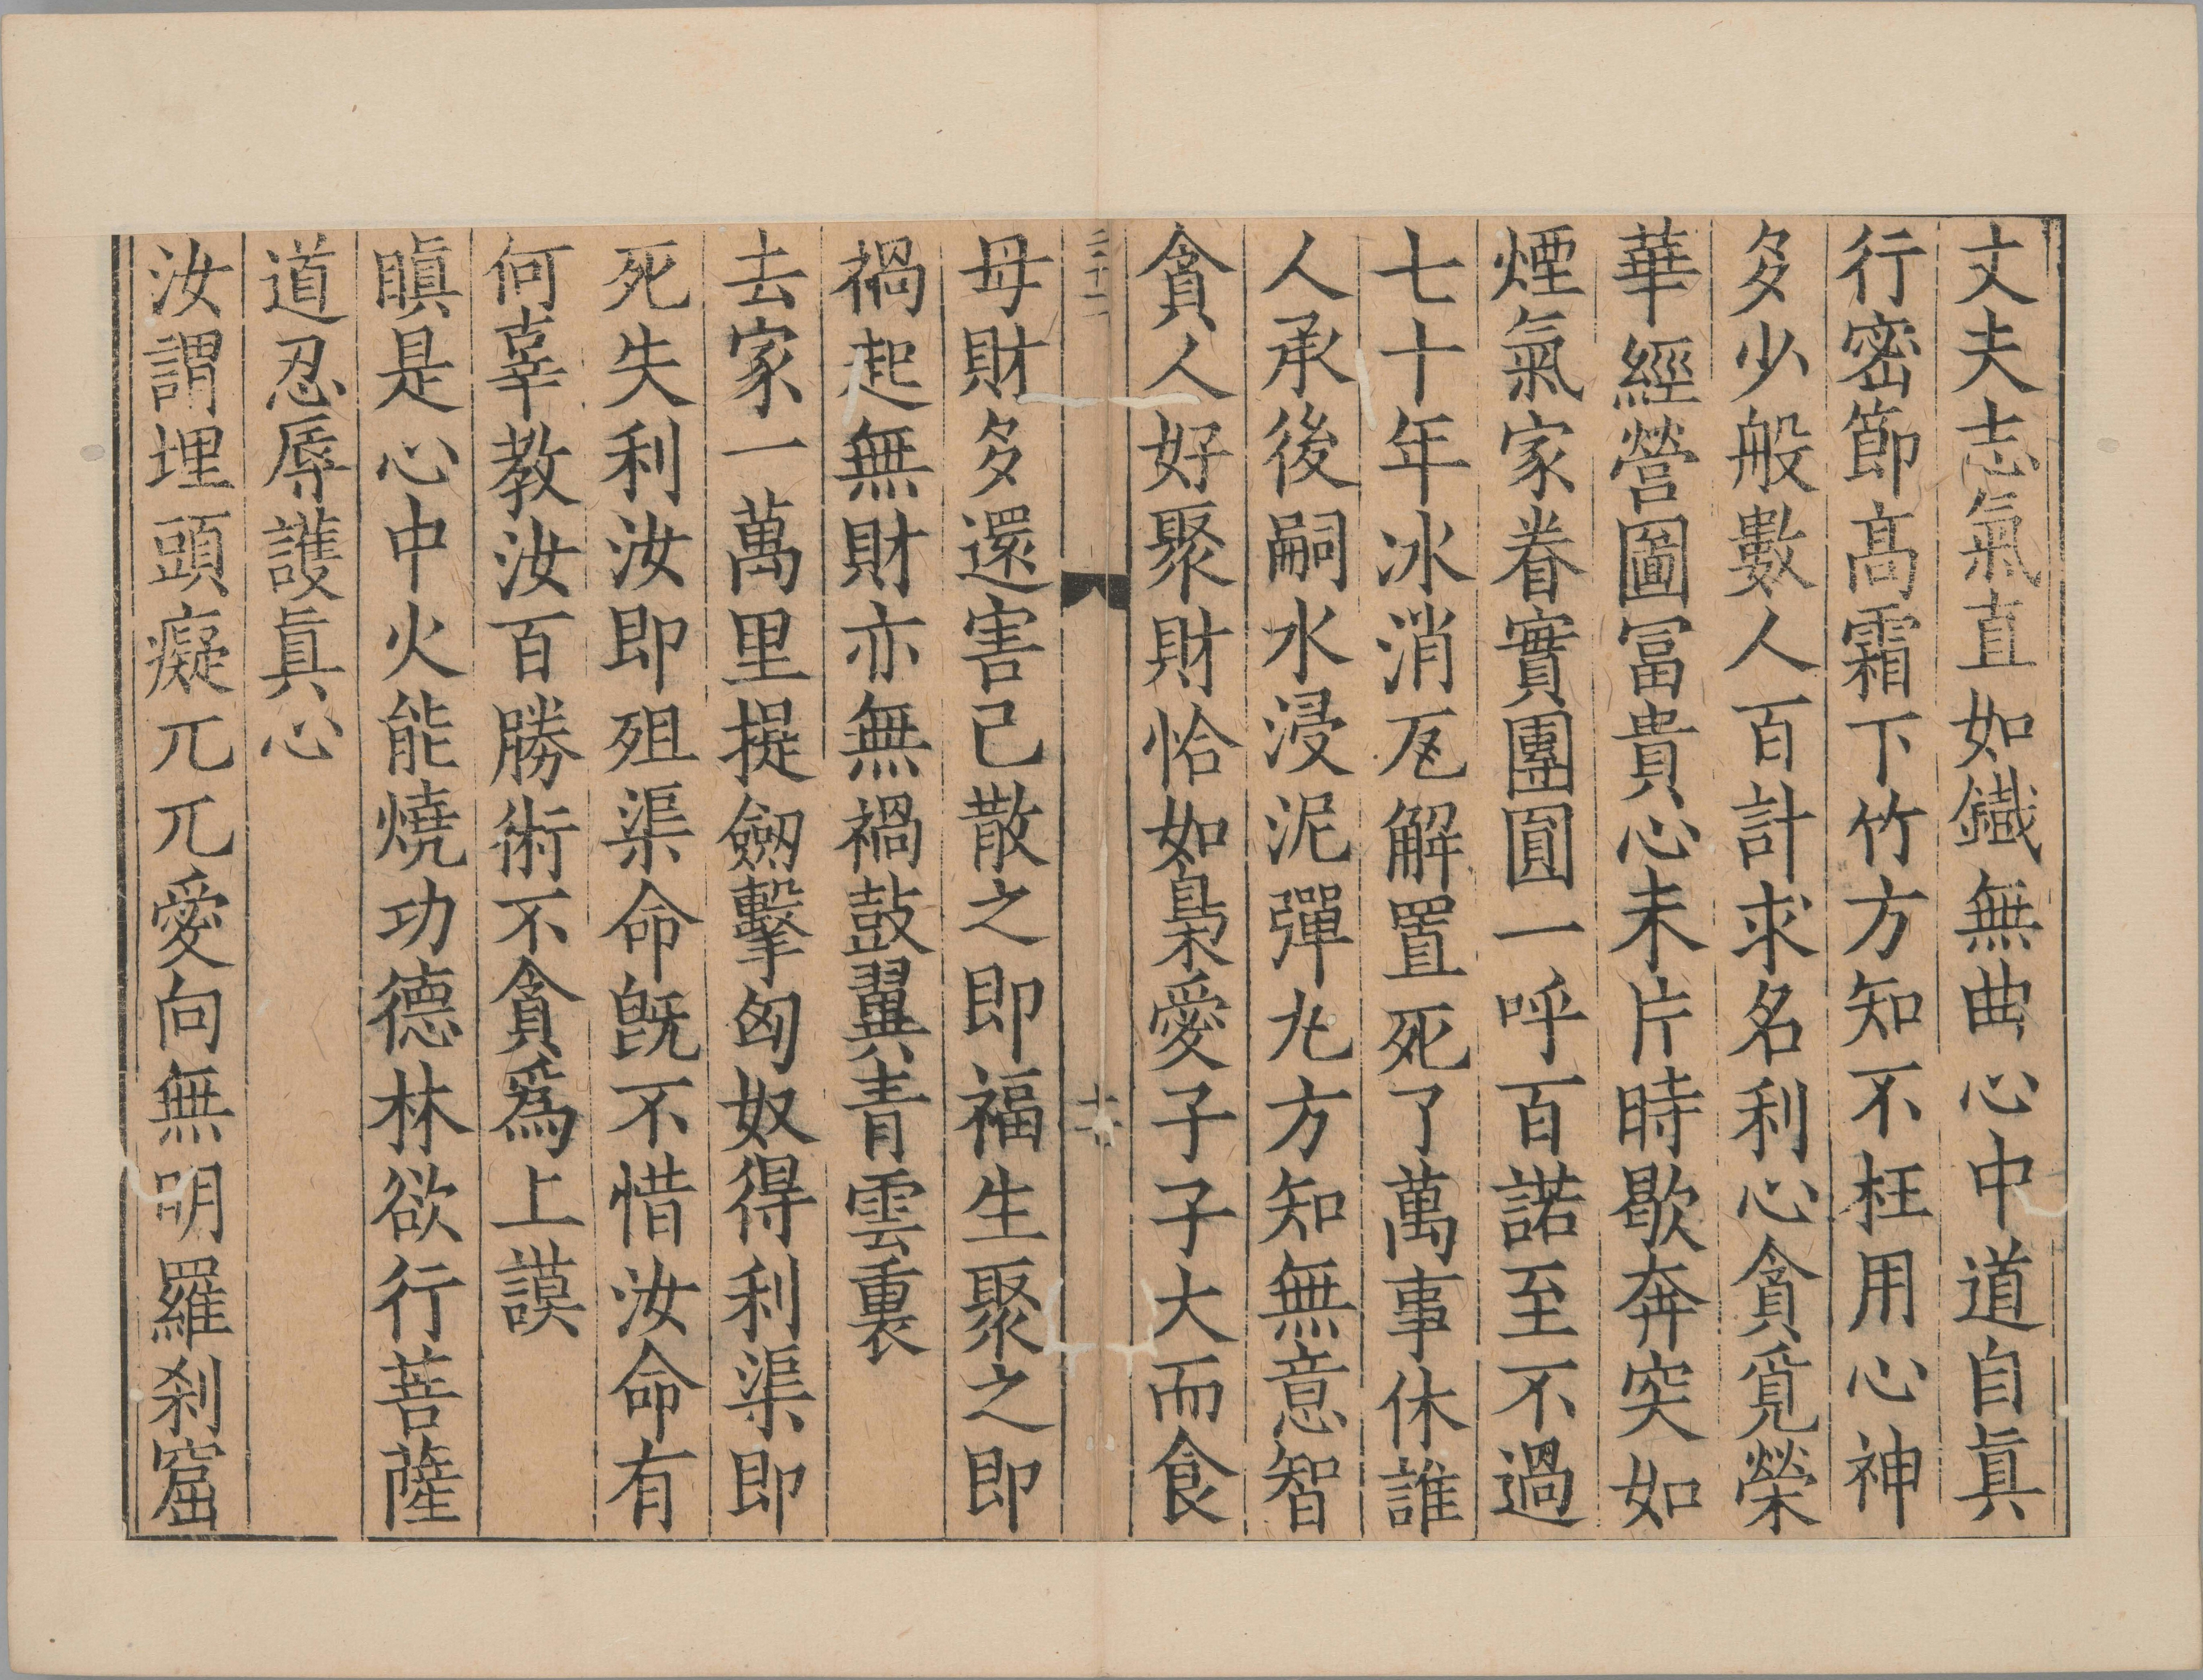 丈夫志氣直如鐵無曲心中道自眞
行密節高霜下竹方知不枉用心神
多少般數人百計求名利心貪覓榮
華經營圖冨貴心未片時歇奔突如
煙氣家眷實團圓一呼百諾至不過
七十年冰消瓦解置死了萬事休誰
人承後嗣水浸泥彈丸方知無意智
貪人好聚財恰如梟愛子子大而食
三十二
十六
母財多還害己散之即福生聚之即
禍起無財亦無禍鼓翼青雲裏
去家一萬里提劒擊匈奴得利渠即
死失利汝即殂渠命旣不惜汝命有
何辜教汝百勝術不貪爲上謨
瞋是心中火能燒功德林欲行菩薩
道忍辱護眞心
汝謂埋頭癡兀兀愛向無明羅刹窟